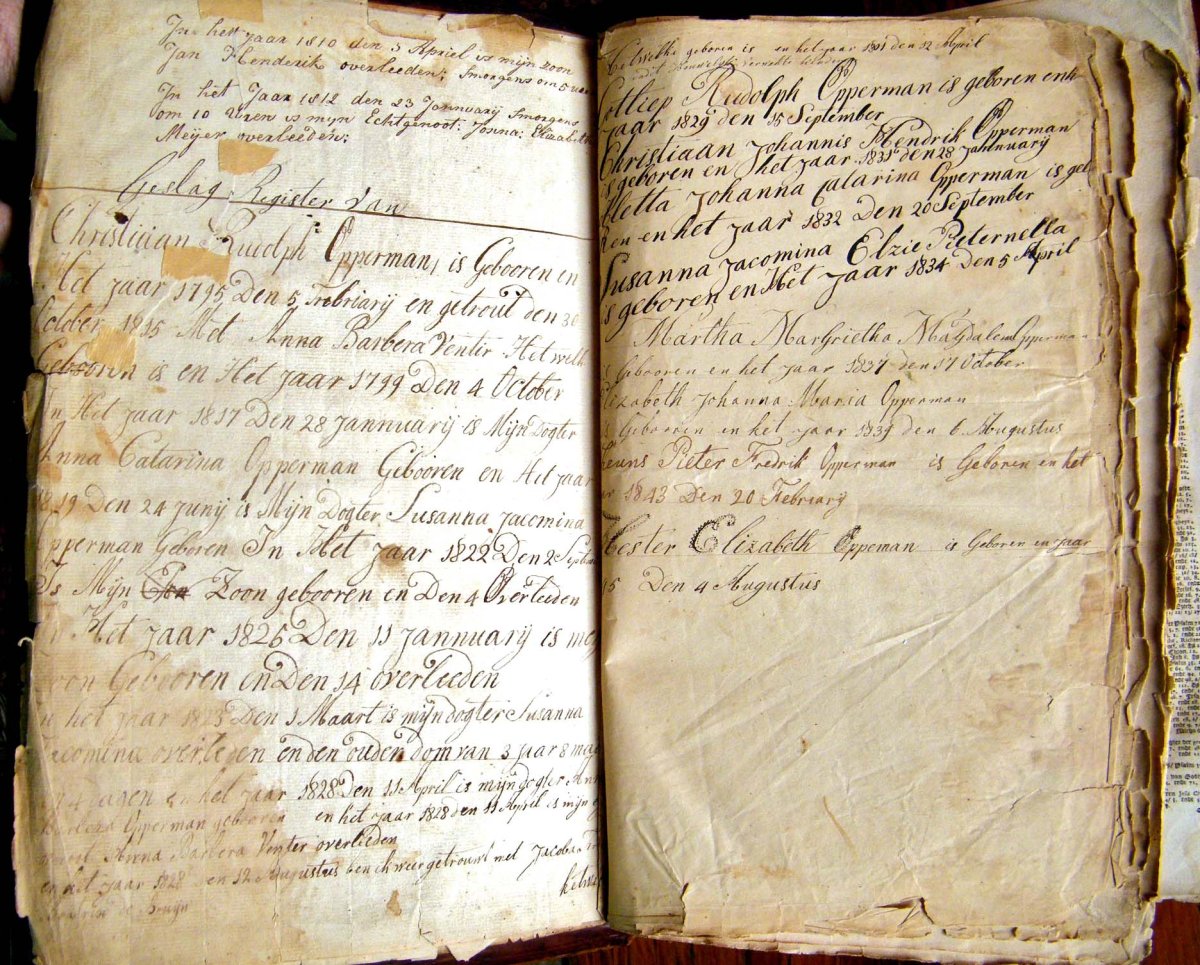 In het Jaar 1810 den 5 Apriel is mijn zoon
Jan Henderik overleeden; Smorgens om 5 uren
In het Jaar 1812 den 23 Jannuarij Smorgens
om 10 Uren is mijn Echtgenoot; Jonna; Elizabeth
Meijer overleeden;
Geslag Register van
Christiaan Rudolph Opperman, is Gebooren en
Het jaar 1795 Den 5 Frebriarij en getrout den 30
October 1815 Met Anna Barbera Ventir Het welk
Gebooren is en Het jaar 1799 Den 4 October
In Het jaar 1817 Den 28 Jannuarij is Mijn Dogter
Anna Catarina Opperman Gebooren en Het jaar
1819 Den 24 Junij is Mijn Dogter Susanna Jacomina
Opperman Geboren In Het jaar 1822 Den 2 Septem
Is Mijn Zoon gebooren en Den 4 Overleeden
In Het jaar 1825 Den 11 Jannuarij is mey
Zoon Gebooren en Den 14 overleeden
In het jaar 1823 Den 1 Maart is mijn dogter Susanna
Jacomina overleden en den ouden dom van 3 jaar 8 ma
4 dagen en het jaar 1828 Den 11 April is mijn dogter Ann
Barbera Opperman gebooren en het jaar 1828 den 11 April is mijn
Anna Barbara Venter overleeden
en het jaar 1828 den 12 Augustus ben ik weer getrouwt met Jacoba
de Bruijn
Het welke geboren is en het jaar 1801 den 12 April
Gotliep Rudolph Opperman is geboren en h
Jaar 1829 den 15 September
Christiaan Johannis Hendrik Opperman
is geboren en Het jaar 1831 den 28 Jannuarij
Aletta Johanna Catarina Opperman is geb
oren en het jaar 1832 Den 20 September
Susanna Jacomina Elzie Pieternella
is geboren en Het jaar 1834 Den 5 April
Martha Margrietha Magdalena Opperman
is Gebooren en het jaar 1837 den 17 October
Elizabeth Johanna Maria Opperman
is Gebooren en het jaar 1839 den 6 Augustus
Theuns Pieter Fredrik Opperman is Geboren en het
jaar 1843 Den 20 Februarij
Hester Elizabeth Oppeman is Geboren en jaar
45 Den 4 Augustus